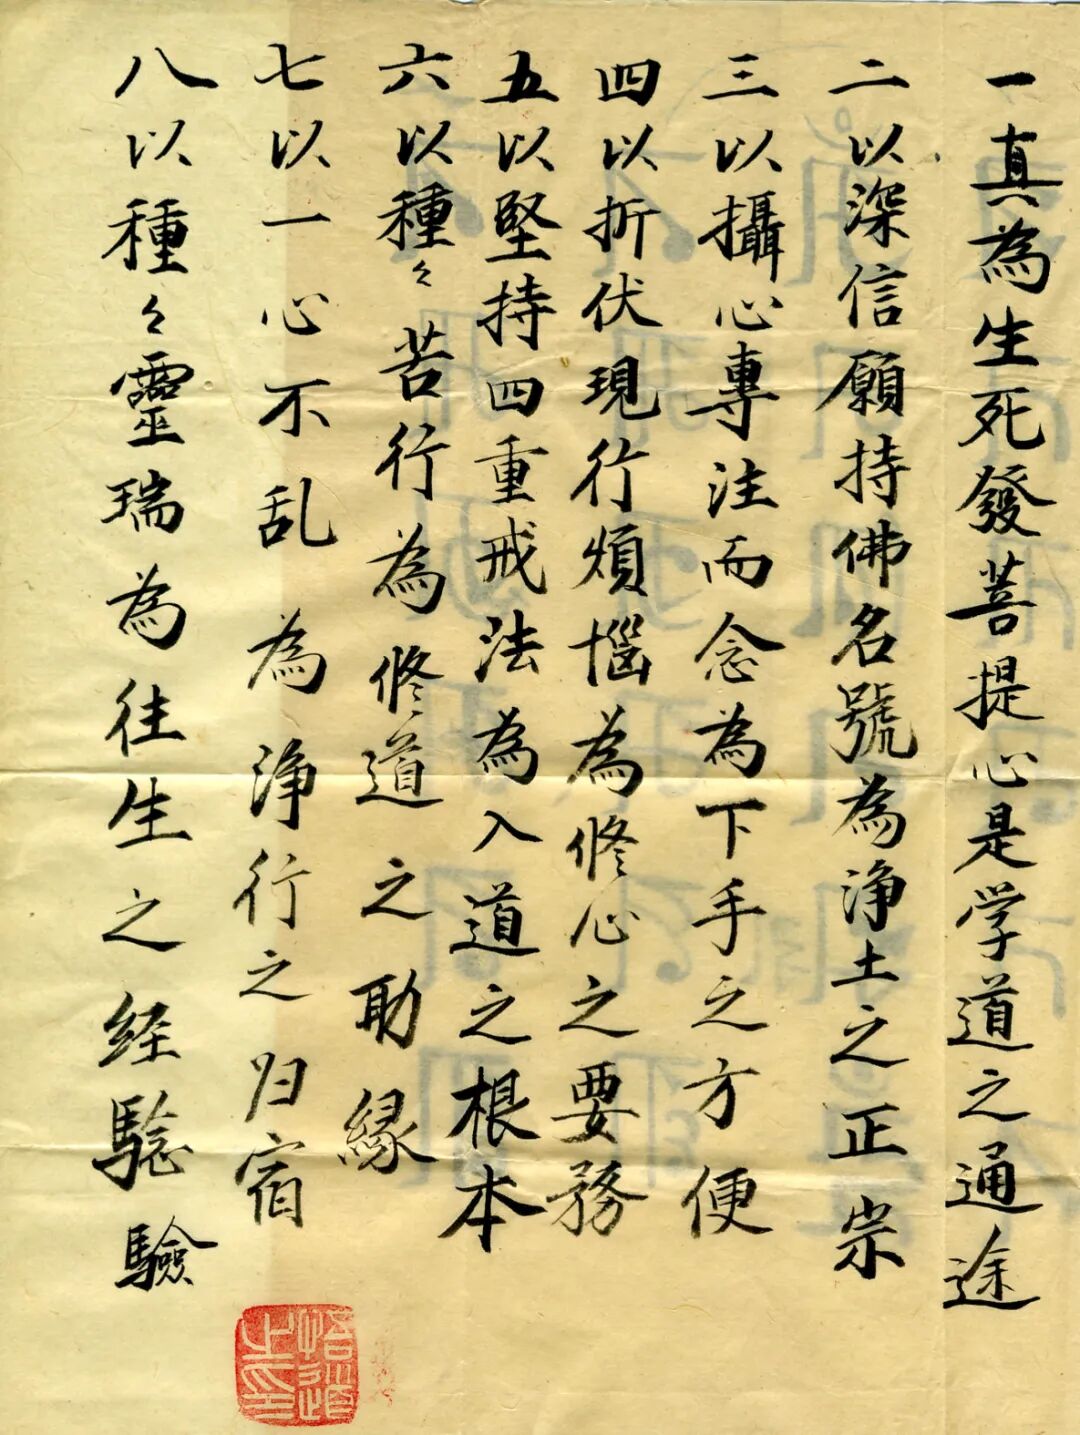 一真為生死發菩提心是学道之通途
二以深信願持佛名號為淨土之正宗
三以攝心專注而念為下手之方便
四以折伏現行煩惱為修心之要務
五以堅持四重戒法為入道之根本
六以種々苦行為修道之助緣
七以一心不乱為淨行之归宿
八以種々靈瑞為往生之経驗驗